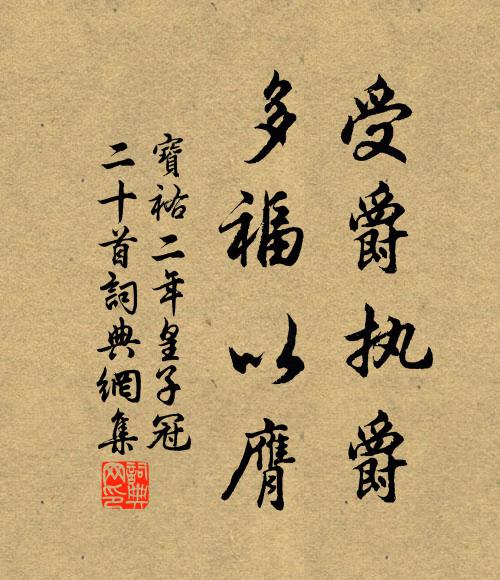 受爵执爵
多福以膺
寶祐二年皇子冠
二十首詞典網集
詞典網印